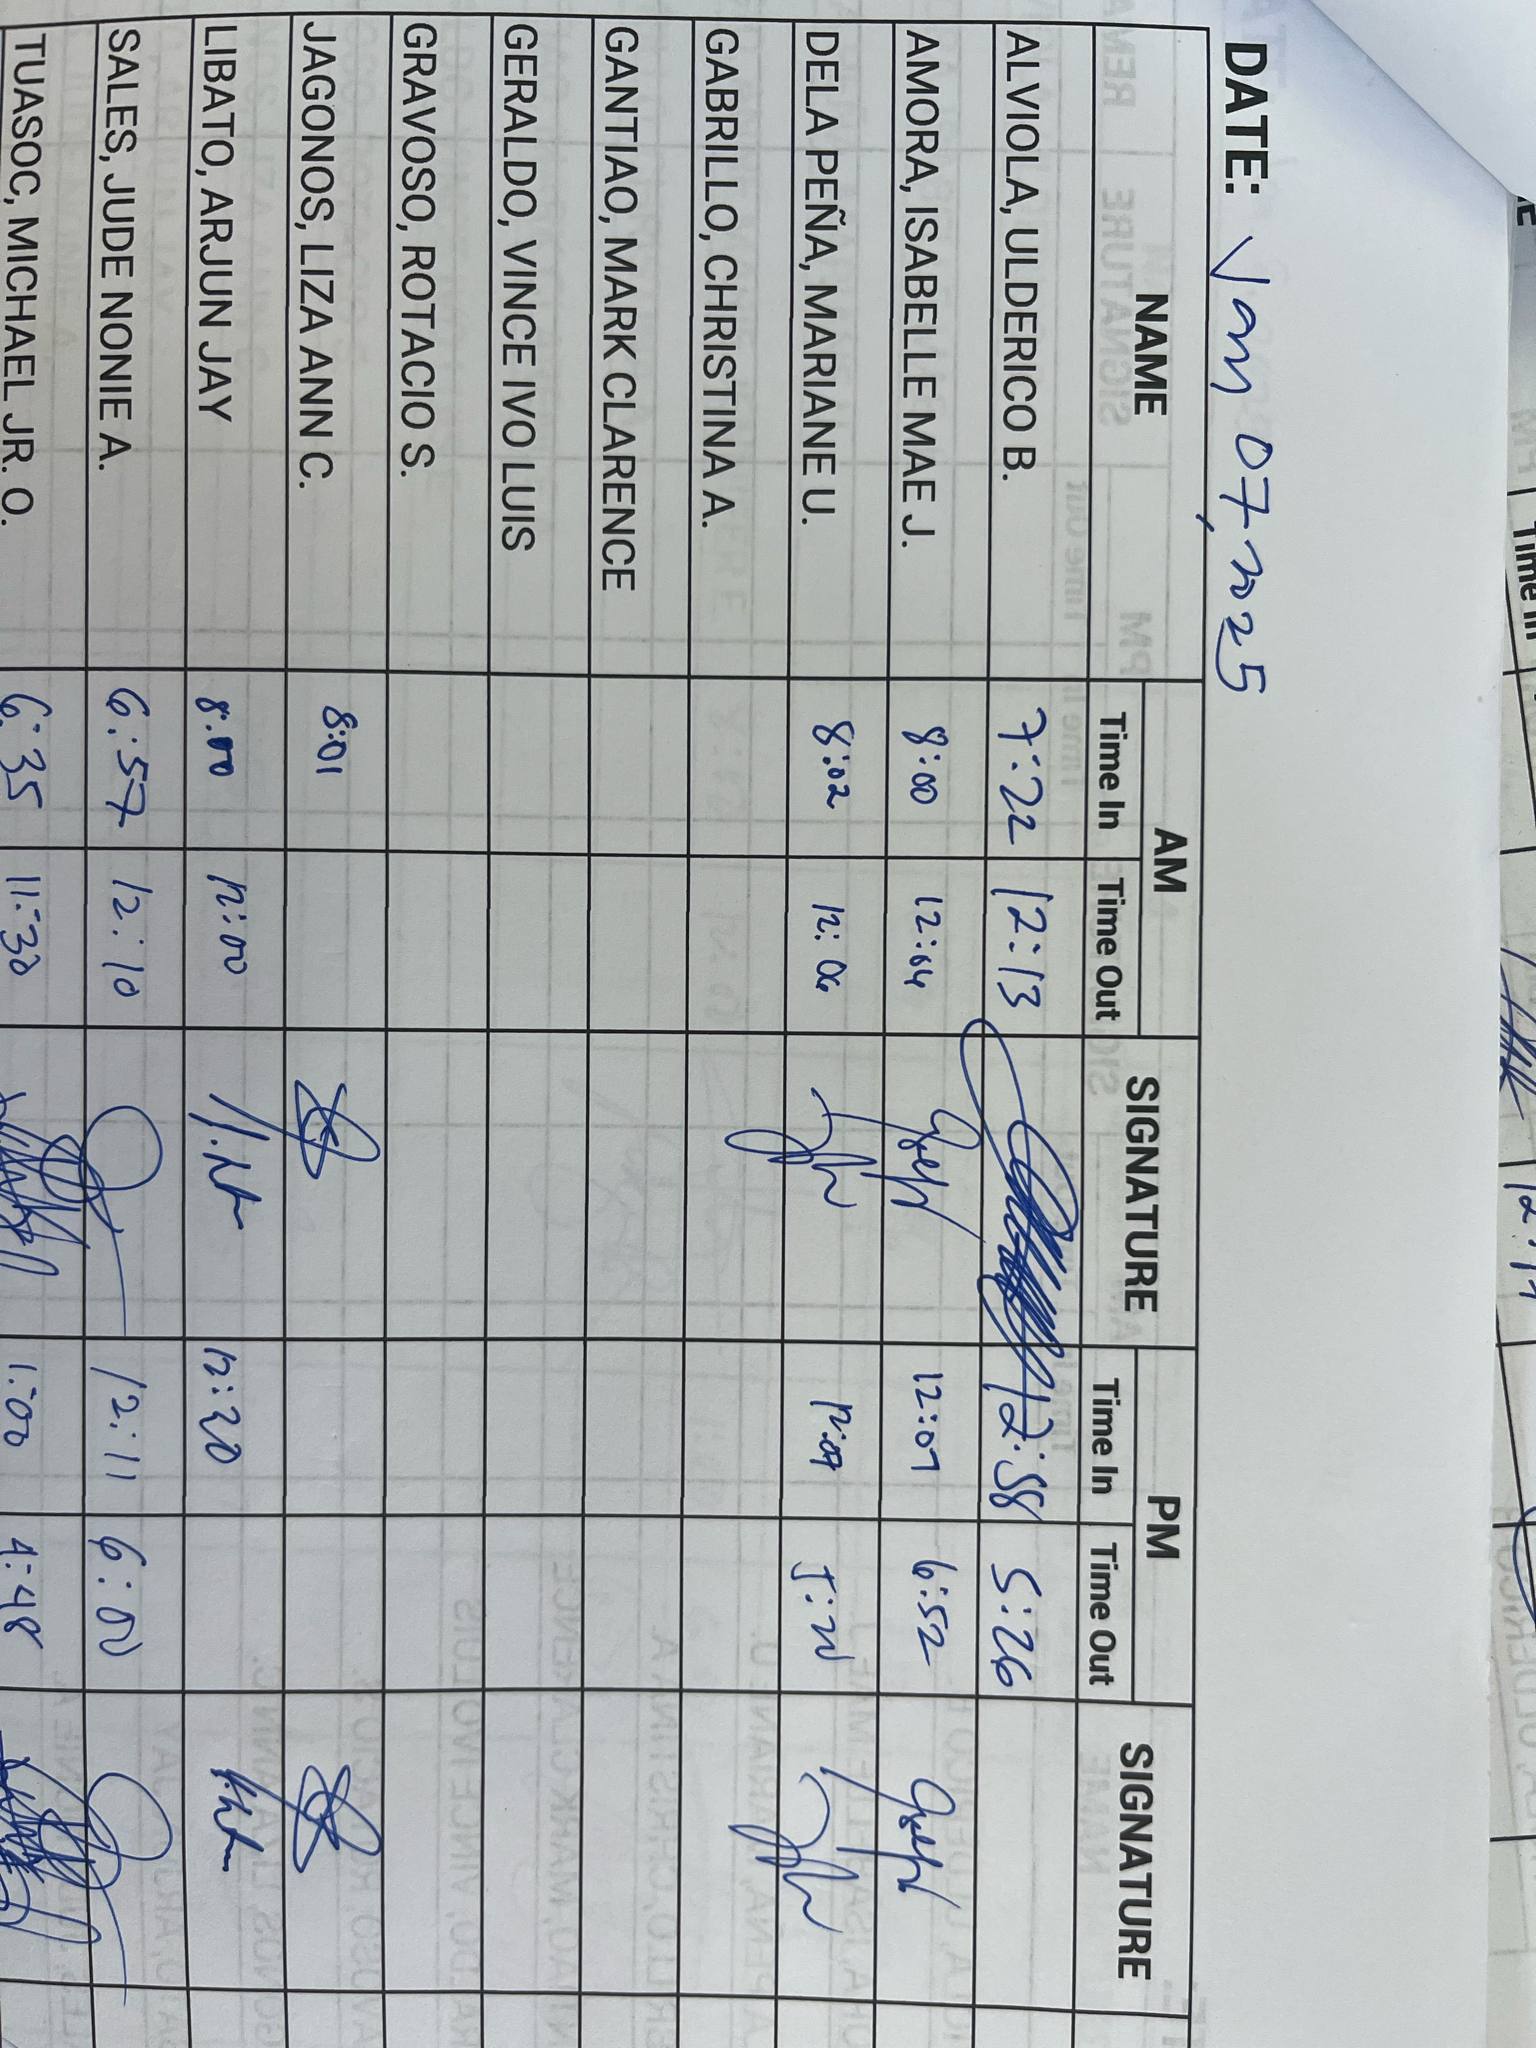 DATE: Jan 07, 2025
NAME AM SIGNATURE PM SIGNATURE
Time In Time Out Time In Time Out
ALVIOLA, ULDERICO B. 7:22 12:13 12:58 5:26
AMORA, ISABELLE MAE J. 8:00 12:04 12:07 6:52
DELA PEÑA, MARIANE U. 8:02 12:06 12:07 5:20
GABRILLO, CHRISTINA A.
GANTIAO, MARK CLARENCE
GERALDO, VINCE IVO LUIS
GRAVOSO, ROTACIO S.
JAGONOS, LIZA ANN C. 8:01
LIBATO, ARJUN JAY 8:00 12:00 12:20
SALES, JUDE NONIE A. 6:57 12:10 12:11 6:00
TUASOC, MICHAEL JR. O. 6:35 11:30 1:00 4:48
Time In